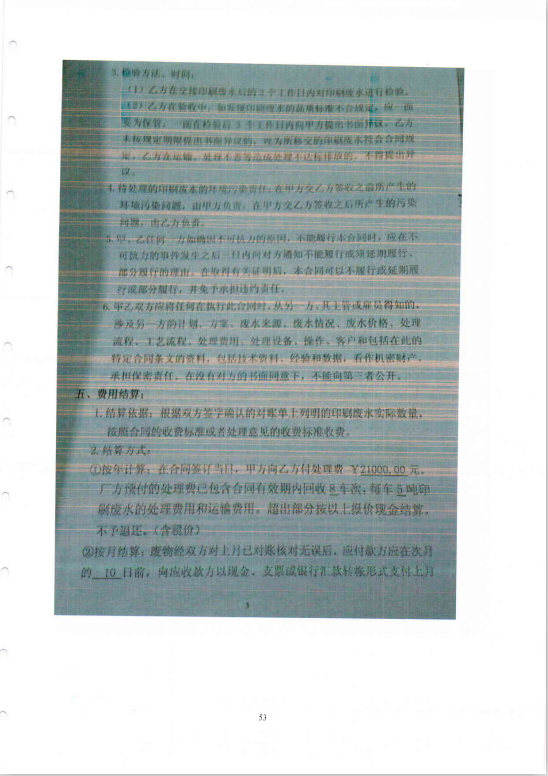 3. 检验方法、时间：
（1）乙方在交接印刷废水后的 2 个工作日内对印刷废水进行检验。
（2）乙方在验收中，如发现印刷废水的品质标准不合规定，应一面
妥为保管，一面在检验后 3 个工作日内向甲方提出书面异议。乙方
未按规定期限提出书面异议的，视为所移交的印刷废水符合合同规
定。乙方在运输、处理不善等造成处理不达标排放的，不得提出异
议。
4. 待处理的印刷废水的环境污染责任：在甲方交乙方签收之前所产生的
环境污染问题，由甲方负责，在甲方交乙方签收之后所产生的污染
问题，由乙方负责。
5. 甲、乙任何一方如确因不可抗力的原因，不能履行本合同时，应在不
可抗力的事件发生之后三日内向对方通知不能履行或须延期履行、
部分履行的理由。在取得有关证明后，本合同可以不履行或延期履
行或部分履行，并免予承担违约责任。
6. 甲乙双方应将任何在执行此合同时，从另一方、其主管或雇员得知的，
涉及另一方的计划、方案、废水来源、废水情况、废水价格、处理
流程、工艺流程、处理费用、处理设备、操作、客户和包括在此的
特定合同条文的资料，包括技术资料、经验和数据，看作机密财产，
承担保密责任。在没有对方的书面同意下，不能向第三者公开。
五、费用结算：
1. 结算依据：根据双方签字确认的对账单上列明的印刷废水实际数量，
按照合同的收费标准或者处理意见的收费标准收费。
2. 结算方式：
①按年计算：在合同签订当日，甲方向乙方付处理费 ￥21000.00 元。
厂方预付的处理费已包含合同有效期内回收 8 车次，每车 5 吨印
刷废水的处理费用和运输费用。超出部分按以上报价现金结算，
不予退还。（含税价）
②按月结算：废物经双方对上月已对账核对无误后，应付款方应在次月
的 10 日前，向应收款方以现金、支票或银行汇款转帐形式支付上月
3
53